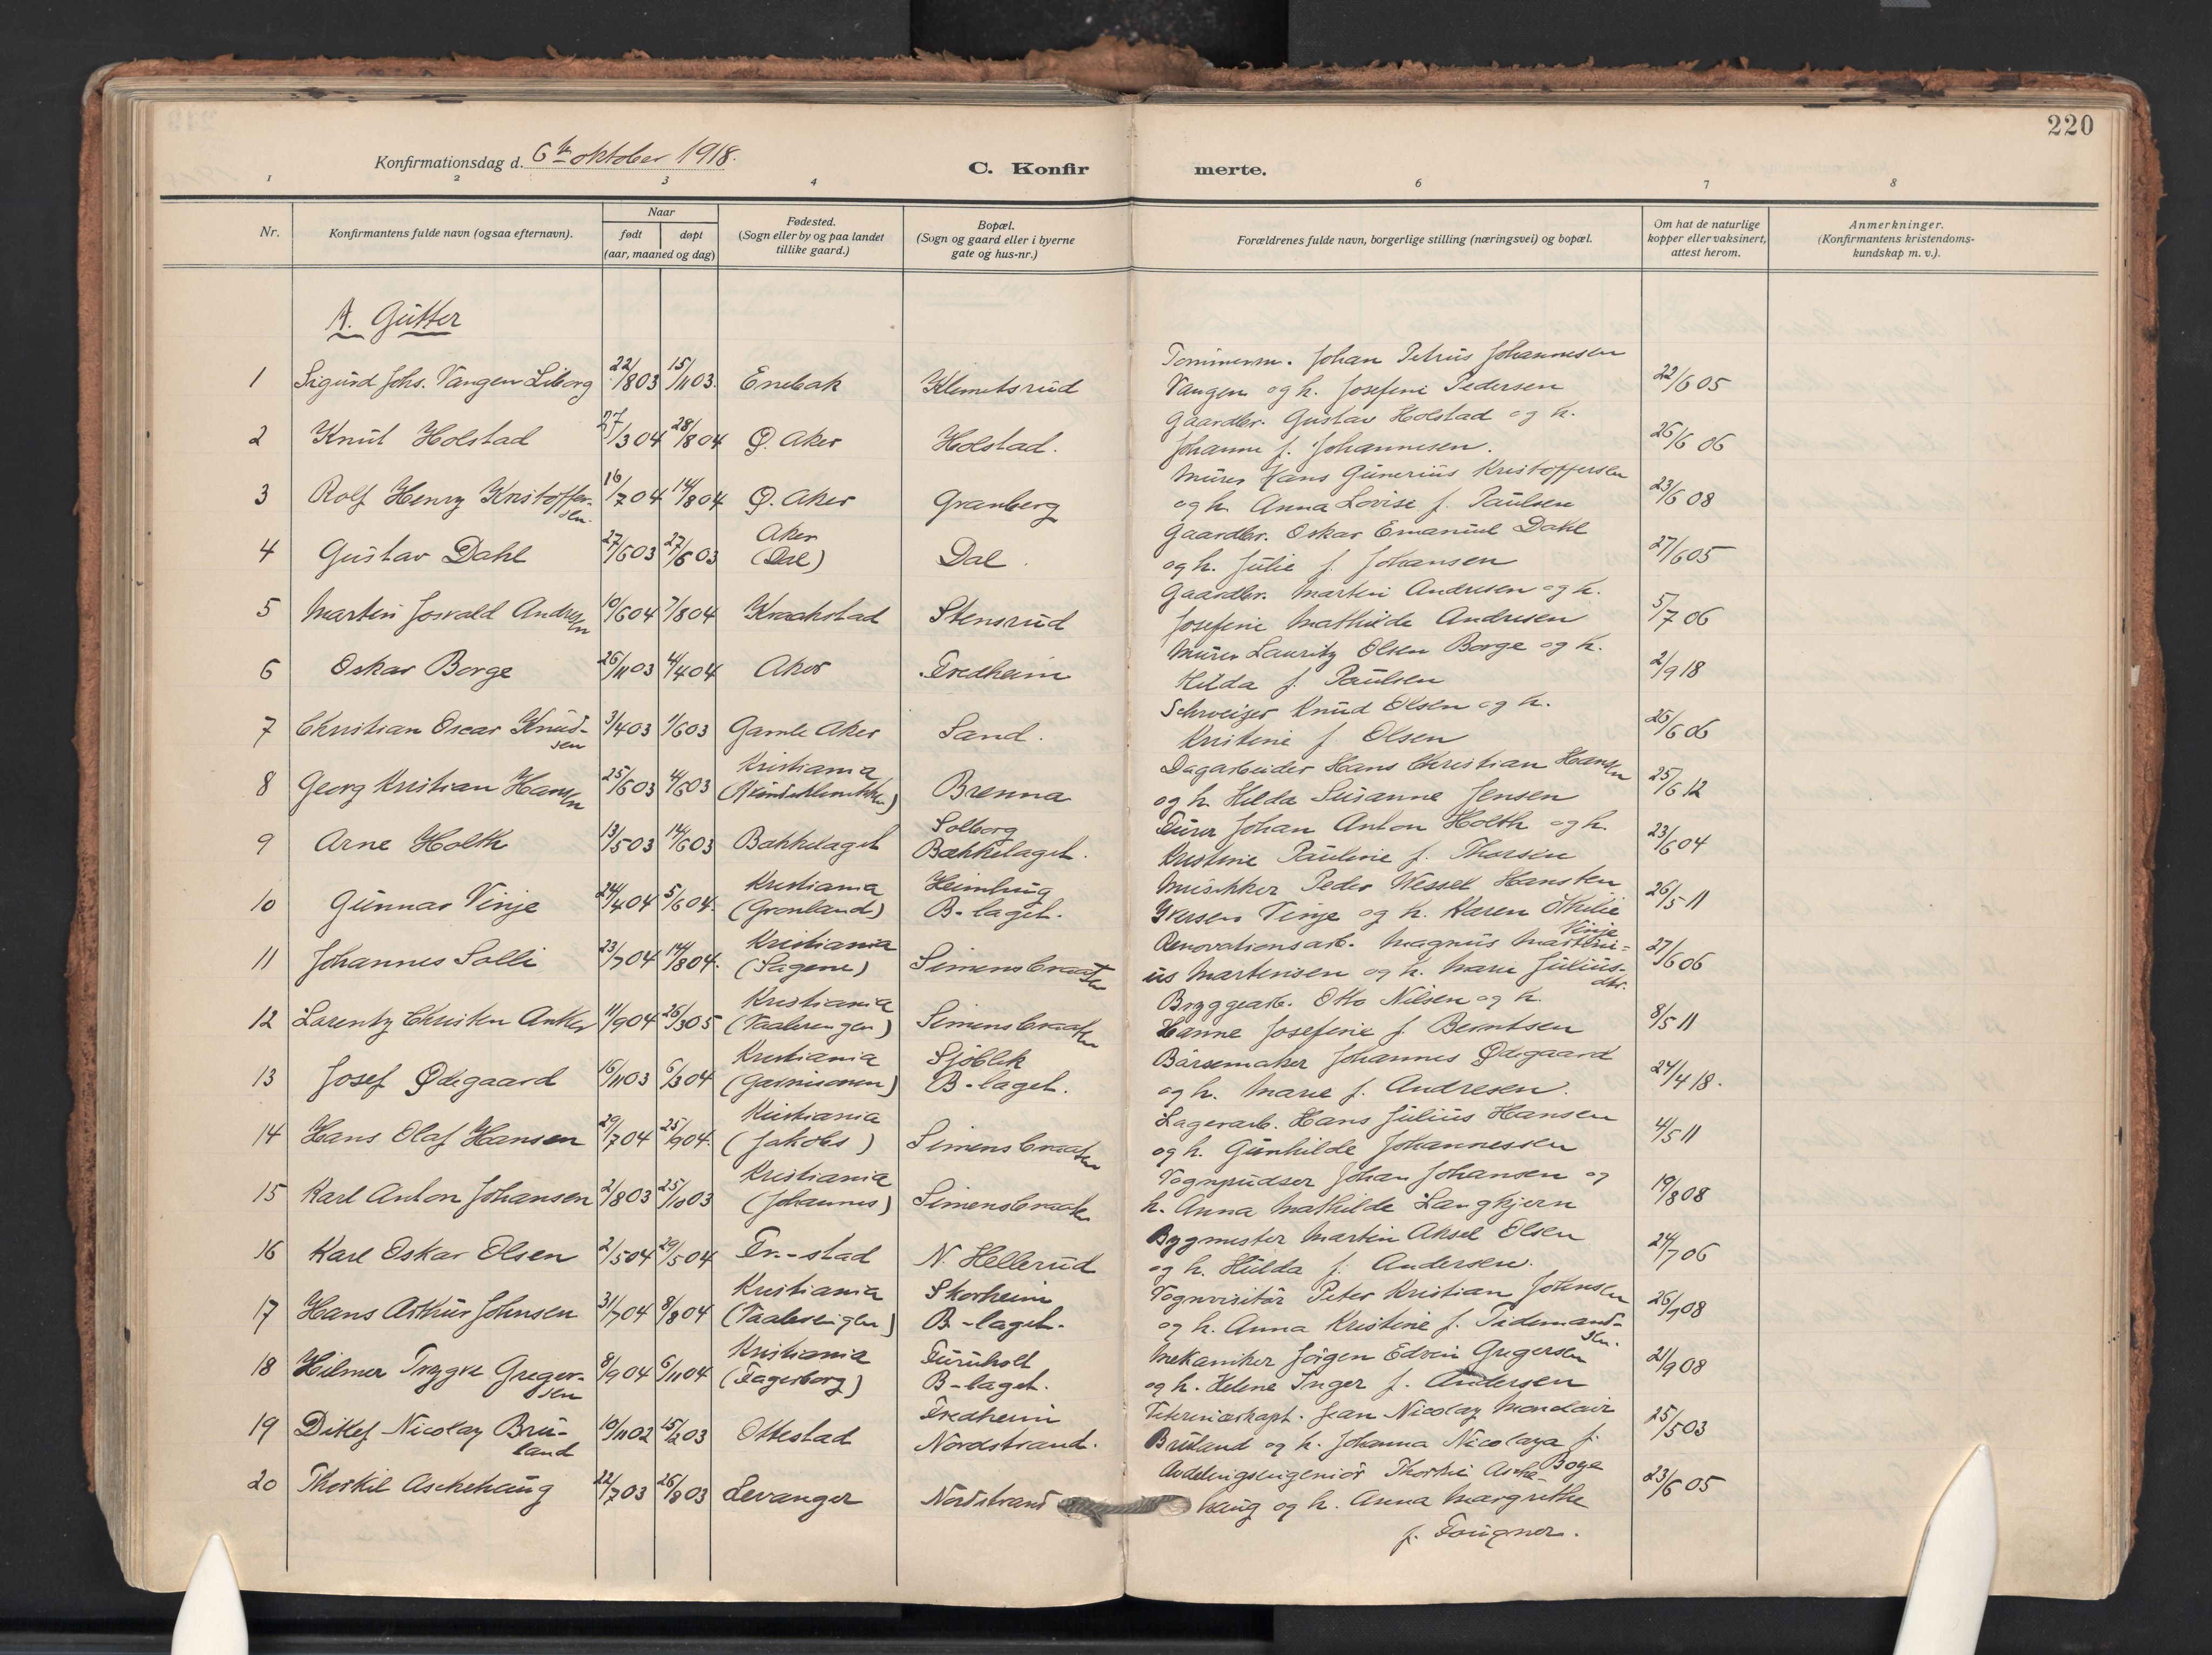 220
Konfirmationsdag d. 6te oktober 1918.
C. Konfirmerte.
1 2 3 4 6 7 8
Nr. Konfirmantens fulde navn (ogsaa efternavn). Naar født døpt (aar, maaned og dag) Fødested. (Sogn eller by og paa landet tillike gaard.) Bopæl. (Sogn og gaard eller i byerne gate og hus-nr.) Forældrenes fulde navn, borgerlige stilling (næringsvei) og bopæl. Om hat de naturlige kopper eller vaksinert, attest herom. Anmerkninger. (Konfirmantens kristendomskundskap m. v.).
A. Gutter
1 Sigurd Johs. Vangen Liborg 22/8 03 15/11 03. Enebak Klemetsrud Tømmerm. Johan Petrus Johannesen
Vangen og h. Josefine Pedersen 22/6 05
2 Knut Holstad 27/3 04 28/8 04 Ø. Aker Holstad. Gaardbr. Gustav Holstad og h.
Johanne f. Johannesen. 26/6 06
3 Rolf Henry Kristoffersen. 16/7 04 14/8 04 Ø. Aker Granberg Murer Hans Gunerius Kristoffersen
og h. Anna Lovise f. Paulsen 23/6 08
4 Gustav Dahl 27/6 03 27/6 03 Aker (Dal) Dal. Gaardbr. Oskar Emanuel Dahl
og h. Julie f. Johansen 27/6 05
5 Martin Josvald Andresen 10/6 04 7/8 04 Kraakstad Stensrud Gaardbr. Martin Andresen og h.
Josefine Mathilde Andresen 5/7 06
6 Oskar Borge 26/11 03 4/4 04 Aker Fredheim Murer Lauritz Olsen Borge og h.
Hilda f. Paulsen 2/9 18
7 Christian Oscar Knudsen 3/4 03 1/6 03 Gamle Aker Sand. Schweizer Knud Olsen og h.
Kristine f. Olsen 26/6 06
8 Georg Kristian Hansen 25/6 03 4/6 03 Kristiania Brenna Dagarbeider Hans Christian Hansen
og h. Hilda Susanne Jensen 25/6 12
9 Arne Holth 13/5 03 14/6 03 Bækkelaget Solborg Bækkelaget. Furer Johan Anton Holth og h.
Kristine Pauline f. Thorsen 23/6 04
10 Gunnar Vinje 24/4 04 5/6 04. Kristiania (Grønland) Heimhug B-laget. Musikker Peder Wessel Hansten
Iversen Vinje og h. Karen Othilie Vinje 26/5 11
11 Johannes Solli 23/7 04 14/8 04. Kristiania (Sagene) Simensbraaten Renovationsarb. Magnus Martini-
us Martensen og h. Marie Juliusdtr. 27/6 06
12 Lorentz Christen Anker 11/9 04 26/3 05 Kristiania (Vaalerengen) Simensbraaten Bryggearb. Otto Nilsen og h.
Hanne Josefine f. Berntsen 8/5 11
13 Josef Ødegaard 16/11 03 6/3 04 Kristiania (Garnisonen) Sjøblik B-laget. Børsemaker Johannes Ødegaard
og h. Marie f. Andresen. 24/4 18.
14 Hans Olaf Hansen 29/7 04 25/9 04. Kristiania (Jakobs) Simensbraaten Lagerarb. Hans Julius Hansen
og h. Gunhilde Johannessen 4/5 11
15 Karl Anton Johansen 2/8 03 25/10 03 Kristiania (Johannes) Simensbraaten Vognpudser Johan Johansen og
h. Anna Mathilde Langkjern 19/8 08
16 Karl Oskar Olsen 2/5 04 29/5 04 Fr.-stad N. Hellerud Bygmester Martin Aksel Olsen
og h. Hulda f. Andersen. 24/7 06
17 Hans Arthur Johnsen 31/7 04 8/8 04 Kristiania (Vaalerengen) Skorheim B.-laget. Vognvisitør Peter Kristian Johnsen
og h. Anna Kristine f. Tidemandsen. 26/9 08
18 Hilmer Trygve Gregersen 8/9 04 6/11 04 Kristiania (Fagerborg) Furuholt B-laget. Mekaniker Jørgen Edvin Gregersen
og h. Helene Inger f. Andersen 21/9 08
19 Ditlef Nicolay Bruland 10/11 02 15/2 03 Ottestad Fredheim Nordstrand. Veterinærkapt. Jean Nicolay Mondair
Bruland og h. Johanna Nicolaya f. Boye 25/5 03
20 Thorkil Aschehaug 22/7 03 26/8 03 Levanger Nordstrand Avdelingsingeniør Thorkil Asche-
haug og h. Anna Margrethe
f. Fougner. 23/6 05